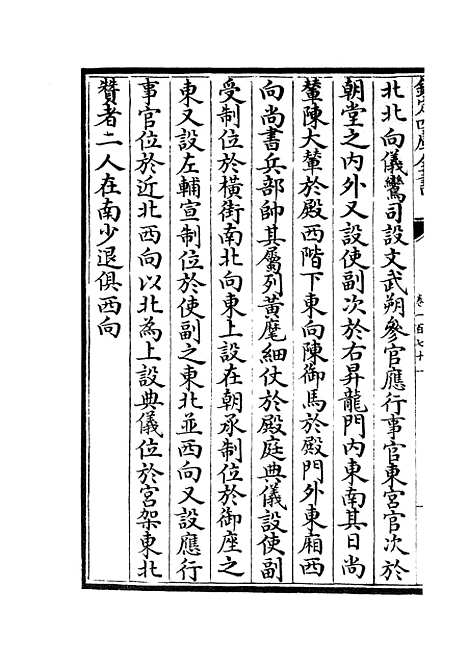 欽定四庫全書
卷一百七十一
北北向儀鸞司設文武朔參官應行事官東宮官次於
朝堂之內外又設使副次於右昇龍門內東南其日尚
輦陳大輦於殿西階下東向陳御馬於殿門外東廂西
向尚書兵部帥其屬列黃麾細仗於殿庭典儀設使副
受制位於橫街南北向東上設在朝承制位於御座之
東又設左輔宣制位於使副之東北並西向又設應行
事官位於近北西向以北為上設典儀位於宮架東北
贊者二人在南少退俱西向